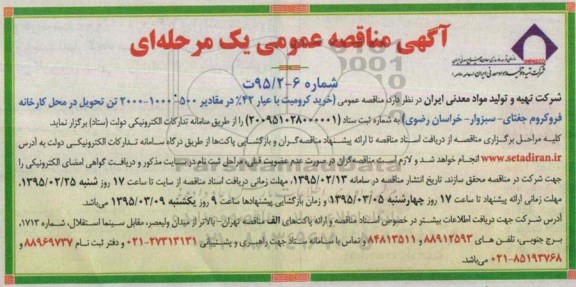 آگهی مناقصه عمومی یک مرحله‌ای
شماره ۶-۹۵/۲ت
شرکت تهیه و تولید مواد معدنی ایران در نظر دارد، مناقصه عمومی (خرید کرومیت با عیار ۴۲٪ در مقادیر ۵۰۰-۱۰۰۰-۲۰۰۰ تن تحویل در محل کارخانه
فروکروم جغتای- سبزوار- خراسان رضوی) به شماره ثبت ستاد (۲۰۰۹۵۱۰۲۸۰۰۰۰۰۱) را از طریق سامانه تدارکات الکترونیکی دولت (ستاد) برگزار نماید.
کلیه مراحل برگزاری مناقصه از دریافت اسناد مناقصه تا ارائه پیشنهاد مناقصه‌گران و بازگشایی پاکت‌ها از طریق درگاه سامانه تدارکات الکترونیکی دولت به آدرس
www.setadiran.ir انجام خواهد شد و لازم است مناقصه‌گران در صورت عدم عضویت قبلی، مراحل ثبت نام در سایت مذکور و دریافت گواهی امضای الکترونیکی را
جهت شرکت در مناقصه محقق سازند. تاریخ انتشار مناقصه در سامانه ۱۳۹۵/۰۲/۱۳، مهلت زمانی دریافت اسناد مناقصه از سایت تا ساعت ۱۷ روز شنبه ۱۳۹۵/۰۲/۲۵،
مهلت زمانی ارائه پیشنهاد تا ساعت ۱۷ روز چهارشنبه ۱۳۹۵/۰۳/۰۵ و زمان بازگشایی پیشنهادها ساعت ۹ روز یکشنبه ۱۳۹۵/۰۳/۰۹ می‌باشد.
آدرس شرکت جهت دریافت اطلاعات بیشتر در خصوص اسناد مناقصه و ارائه پاکت‌های الف مناقصه: تهران- بالاتر از میدان ولیعصر، مقابل سینما استقلال، شماره ۱۷۱۳،
برج جنوبی، تلفن های ۸۸۹۱۲۵۹۳ و ۸۴۸۱۳۵۱۱ و تماس با سامانه ستاد جهت راهبری و پشتیبانی ۲۷۳۱۳۱۳۱-۰۲۱ و دفتر ثبت نام ۸۸۹۶۹۷۳۷ و
۸۵۱۹۳۷۶۸-۰۲۱ می‌باشد.